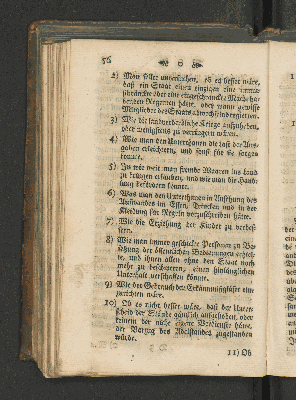 56
2) Man solle untersuchen, ob es besser wäre,
daß ein Staat einen einzigen eine unum-
schränkte oder eine eingeschränkte Macht ha-
benden Regenten hätte, oder wann gewisse
Mitglieder des Staats abwechselnd regierten.
3) Wie die landverderbliche Kriege aufzuheben,
oder wenigstens zu verringern wären.
4) Wie man den Unterthanen die Last der Aus-
gaben erleichtern, und sonst für sie sorgen
könnte.
5) In wie weit man fremde Waaren ins Land
zu bringen erlauben, und wie man die Hand-
lung befördern könnte.
6) Was man den Unterthanen in Ansehung des
Aufwandes im Essen, Trincken und in der
Kleidung für Regeln vorzuschreiben hätte.
7) Wie die Erziehung der Kinder zu verbes-
sern.
8) Wie man immer geschickte Personen zu Be-
sitzung der öffentlichen Bedienungen erhielte,
und ihnen allen ohne den Staat noch
mehr zu beschweren, einen hinlänglichen
Unterhalt verschaffen könne.
9) Wie der Gebrauch der Erkänntnißkräfte ein-
zurichten wäre.
10) Ob es nicht besser wäre, daß der Unter-
scheid der Stände gäntzlich aufgehoben, oder
keinem der nicht eigene Verdienste hätte,
der Vorzug des Adelstandes zugestanden
würde.
11) Ob